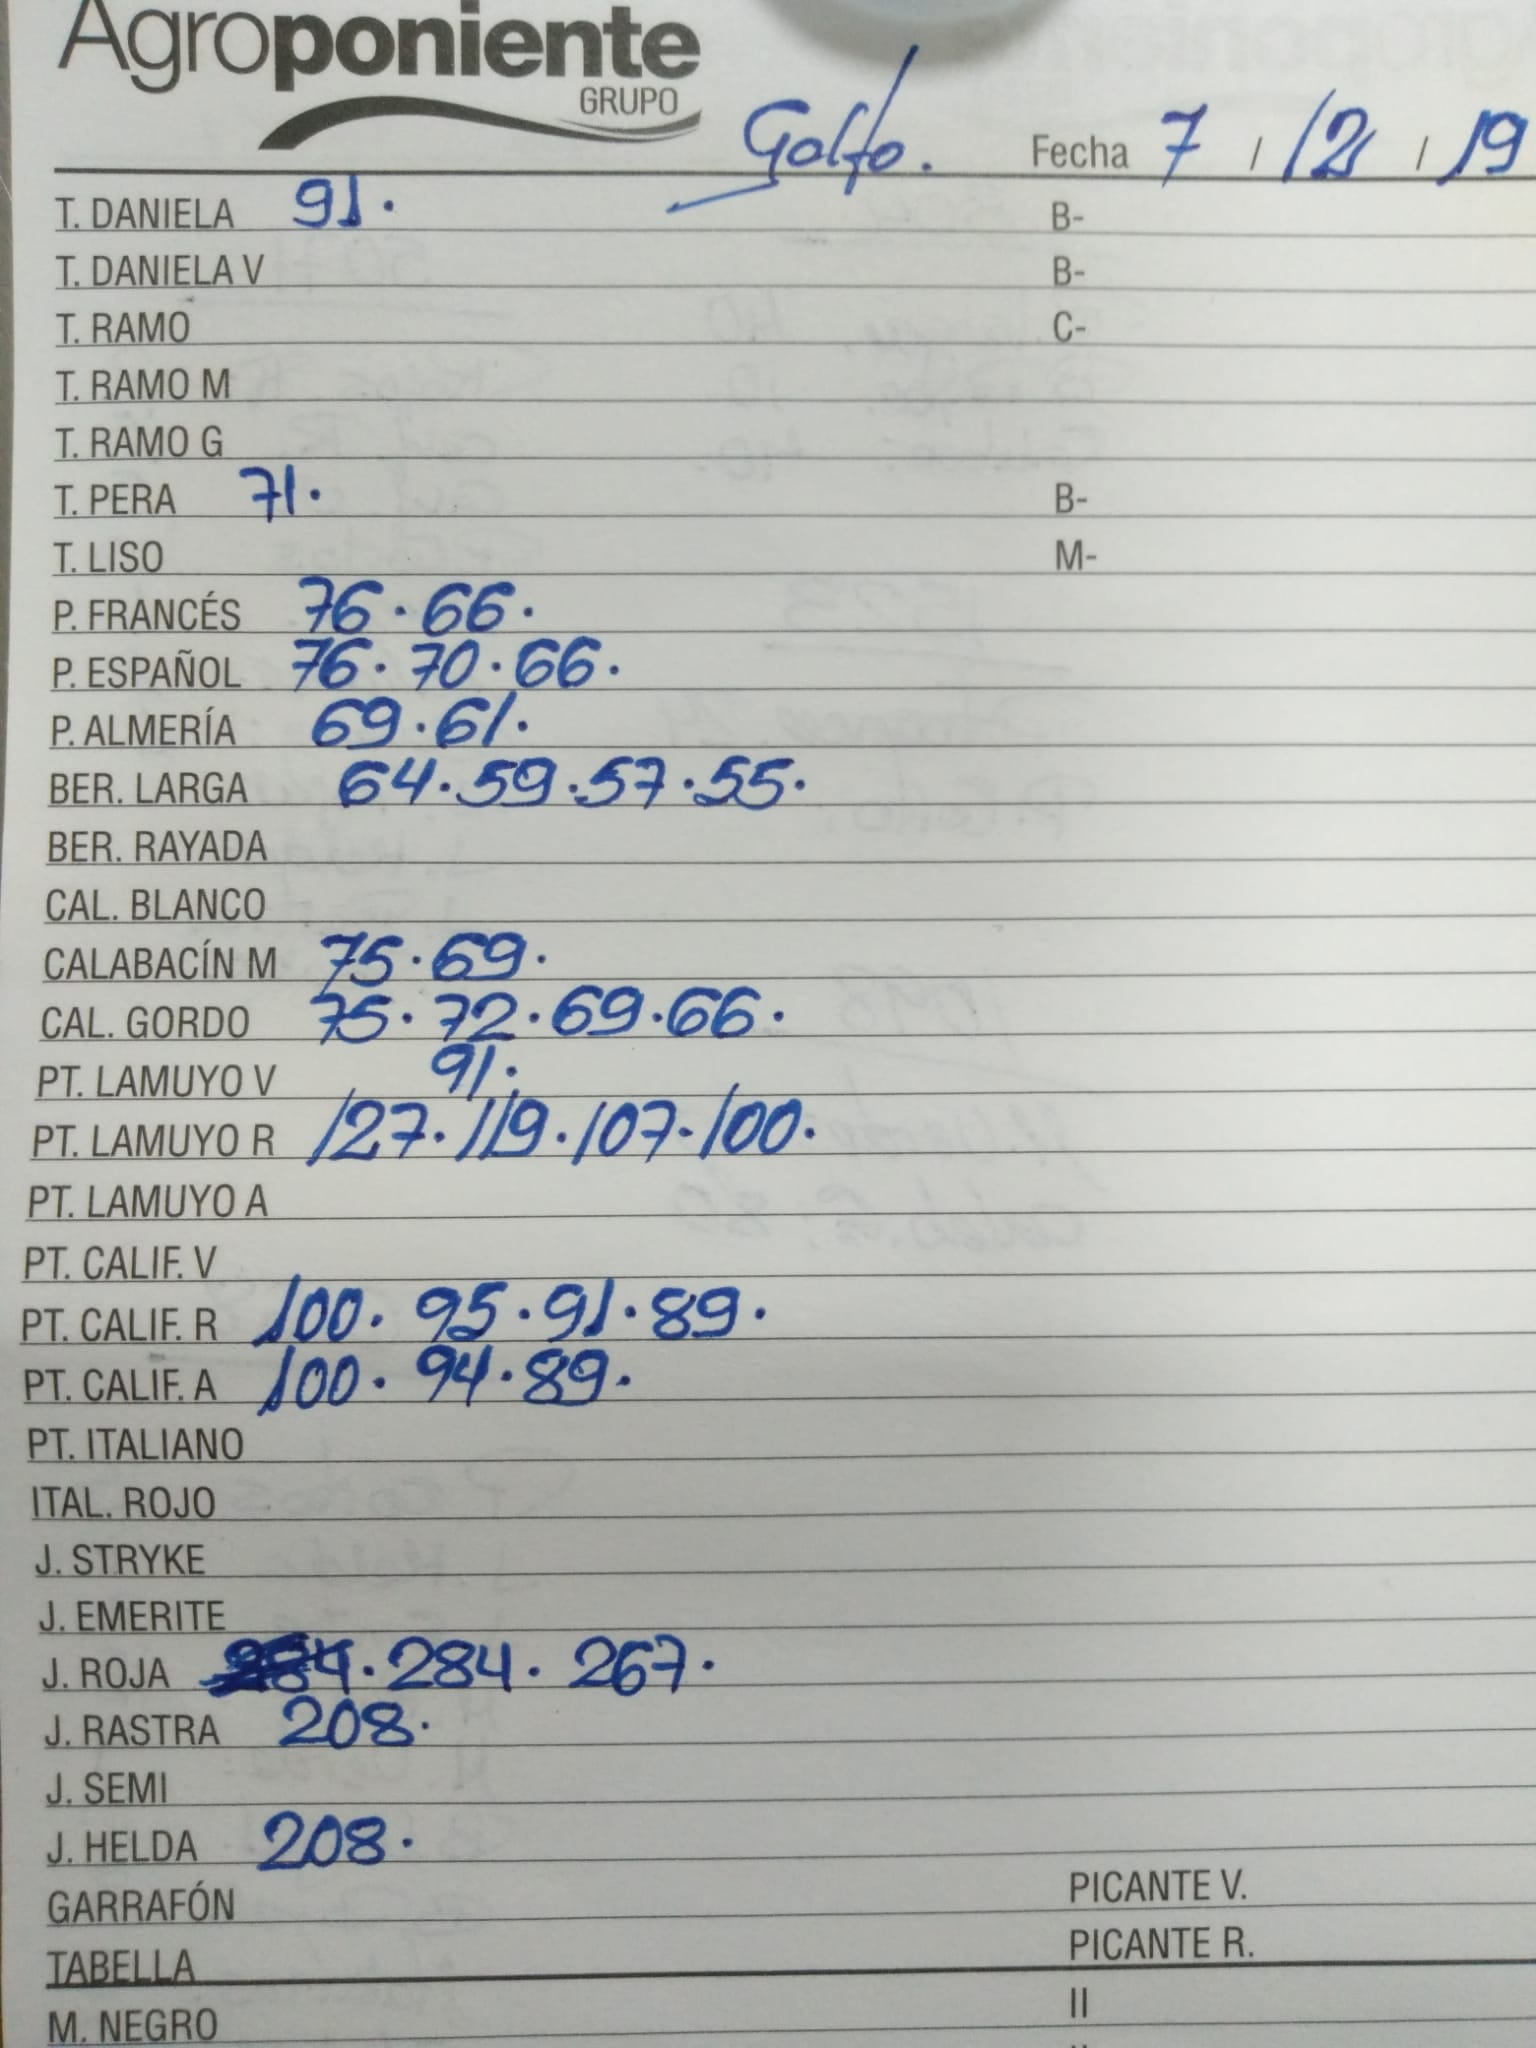 Agroponiente
GRUPO
Golfo. Fecha 7 / 12 / 19
T. DANIELA 91. B-
T. DANIELA V B-
T. RAMO C-
T. RAMO M
T. RAMO G
T. PERA 71. B-
T. LISO M-
P. FRANCÉS 76.66.
P. ESPAÑOL 76.70.66.
P. ALMERÍA 69.61.
BER. LARGA 64.59.57.55.
BER. RAYADA
CAL. BLANCO
CALABACÍN M 75.69.
CAL. GORDO 75.72.69.66.
PT. LAMUYO V 91.
PT. LAMUYO R 127.119.107.100.
PT. LAMUYO A
PT. CALIF. V
PT. CALIF. R 100.95.91.89.
PT. CALIF. A 100.94.89.
PT. ITALIANO
ITAL. ROJO
J. STRYKE
J. EMERITE
J. ROJA .284.267.
J. RASTRA 208.
J. SEMI
J. HELDA 208.
GARRAFÓN PICANTE V.
TABELLA PICANTE R.
M. NEGRO II